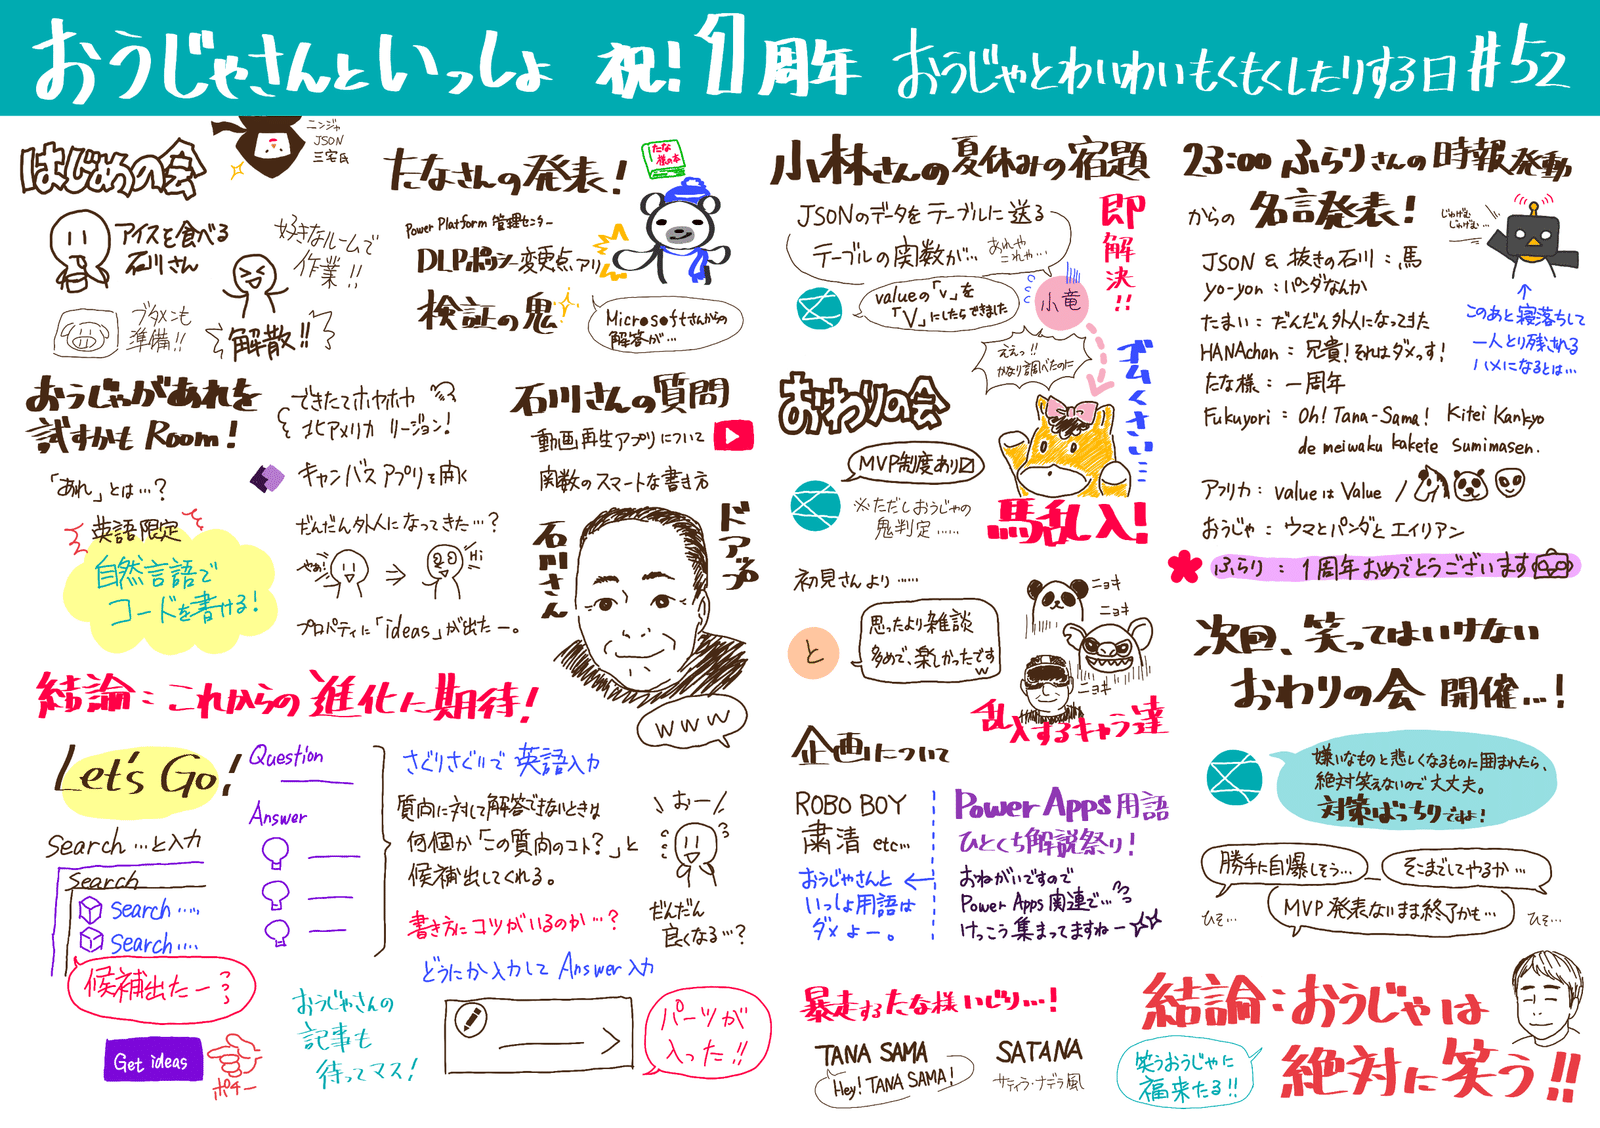 おうじゃさんといっしょ 祝!1周年 おうじゃとわいわいもくもくしたりする日 #52
はじめの会
ニンジャ
JSON
三宅氏
アイスを食べる
石川さん
好きなルームで
作業!!
ブタメンも
準備!!
解散!!
たなさんの発表!
たな
様の本
Power Platform 管理センター
DLPポリシー変更点アリ
検証の鬼
Microsoftさんからの
解答が…
おうじゃがあれを
試すかも Room!
できたてホヤホヤ
北アメリカ リージョン!
「あれ」とは…?
キャンバスアプリを開く
英語限定
自然言語で
コードを書ける!
だんだん外人になってきた…?
やぁ!
Hi
プロパティに「ideas」が出たー。
石川さんの質問
動画再生アプリについて
関数のスマートな書き方
石川さん
ドアップ
www
結論:これからの進化に期待!
Let's Go!
Search …と入力
Search
Search ……
Search ….
候補出たー
Get ideas
ポチー
Question
Answer
さぐりさぐりで英語入力
質問に対して解答できないときは
何個か「この質問のコト?」と
候補出してくれる。
書き方にコツがいるのか…?
おー
だんだん
良くなる…?
どうにか入力して Answer 入力
おうじゃさんの
記事も
待ってマス!
パーツが
入った!!
小林さんの夏休みの宿題
JSONのデータをテーブルに送る
テーブルの関数が… あれや
これや…
valueの「v」を
「V」にしたらできました
小竜
即解決!!
ええっ!!
かなり調べたのに
ゴムくさい…
馬乱入!
おわりの会
MVP制度あり
※ただしおうじゃの
鬼判定……
初見さんより……
と
思ったより雑談
多めで、楽しかったです
w
ニョキ
ニョキ
ニョキ
乱入するキャラ達
企画について
ROBO BOY
粛清 etc…
おうじゃさんと
いっしょ用語は
ダメよー。
Power Apps用語
ひとくち解説祭り!
おねがいですので
Power Apps 関連で…
けっこう集まってますねー
暴走するたな様いじり…!
TANA SAMA
Hey! TANA SAMA!
SATANA
サティア・ナデラ風
23:00 ふらりさんの時報発動
からの 名言発表!
じゅげむ
じゅげむ…
JSON & 抜きの石川:馬
yo-yon:パンダなんか
たまい:だんだん外人になってきた
HANAchan:兄貴!それはダメっす!
たな様:一周年
Fukuyori:Oh! Tana-Sama! Kitei Kankyo
de meiwaku kakete sumimasen.
アフリカ:valueは Value /
おうじゃ:ウマとパンダとエイリアン
ふらり:1周年おめでとうございます
このあと寝落ちして
一人とり残される
ハメになるとは…
次回、笑ってはいけない
おわりの会 開催…!
嫌いなものと悲しくなるものに囲まれたら、
絶対笑えないので大丈夫。
対策ばっちりですよ!
勝手に自爆しそう…
そこまでしてやるか…
MVP発表ないまま終了かも…
ひそ…
ひそ…
結論:おうじゃは
絶対に笑う!!
笑うおうじゃに
福来たる!!